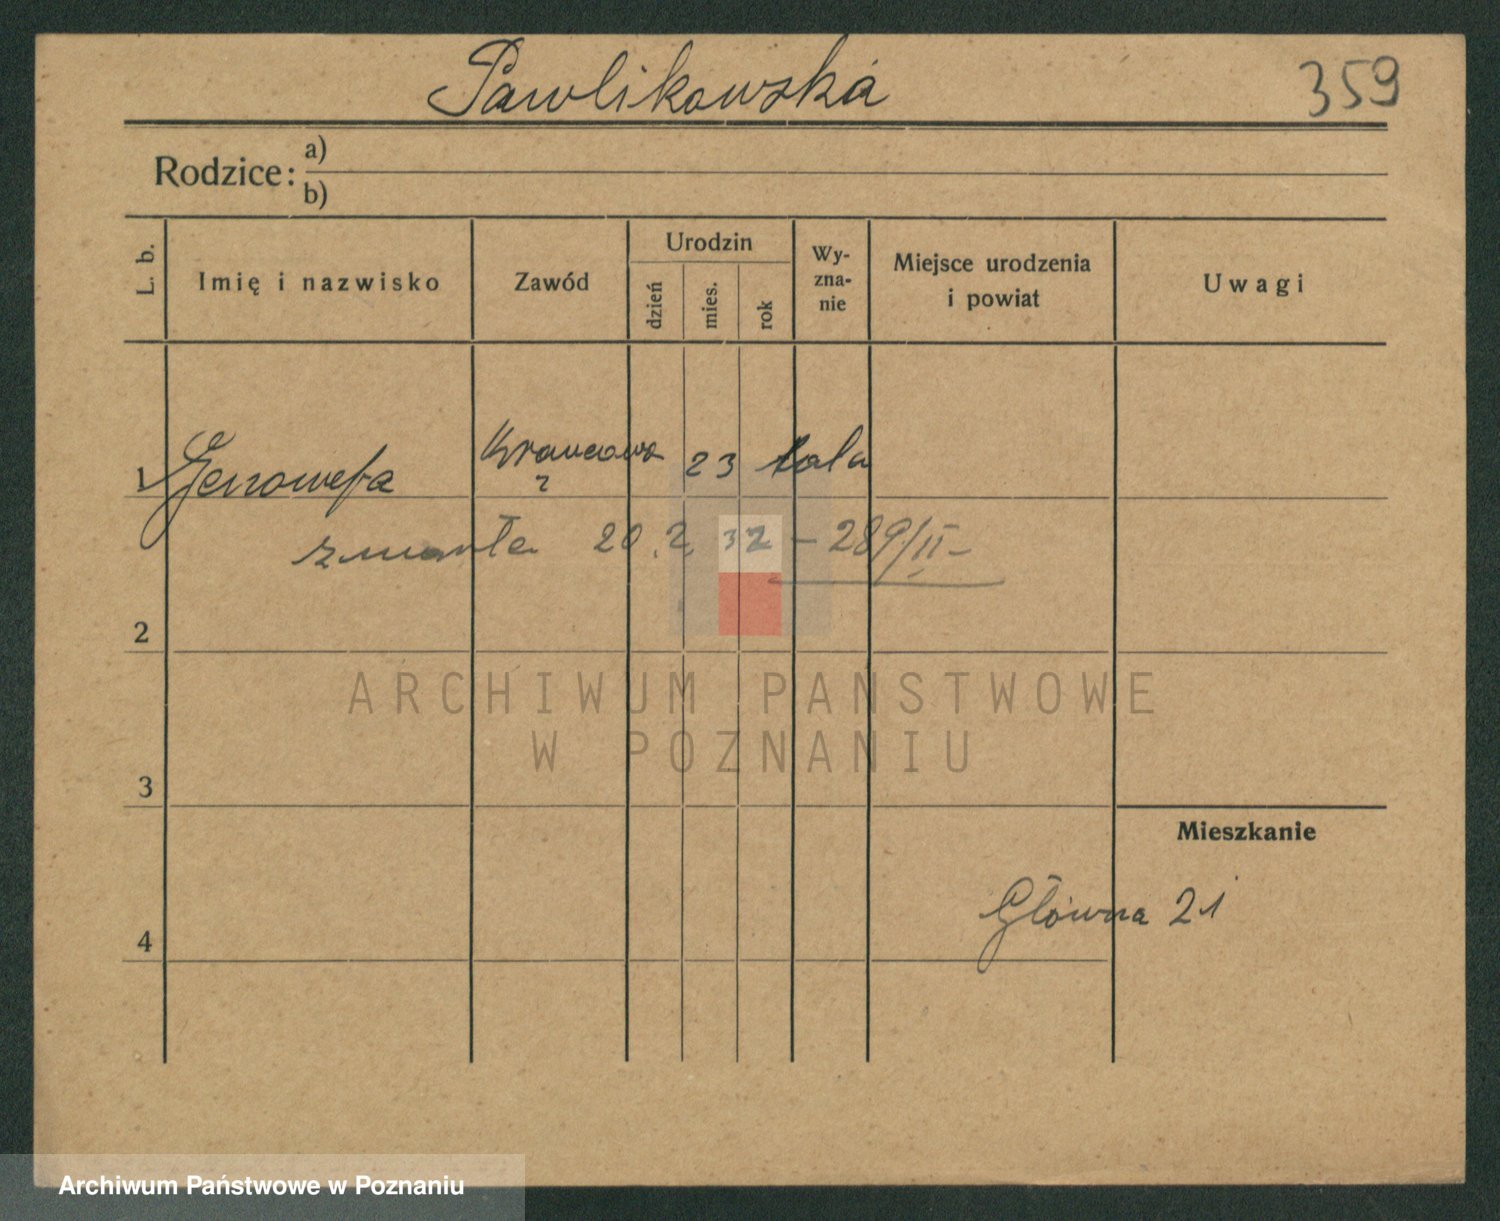 Pawlikowska 359
Rodzice: a)
b)
L. b. Imię i nazwisko Zawód Urodzin dzień mies. rok Wy-zna-nie Miejsce urodzenia i powiat Uwagi
1 Genowefa Krawcowa 23 lata
zmarła 20.2.32 – 289/II –
2
ARCHIWUM PAŃSTWOWE
W POZNANIU
3
Mieszkanie
Główna 21
4
Archiwum Państwowe w Poznaniu